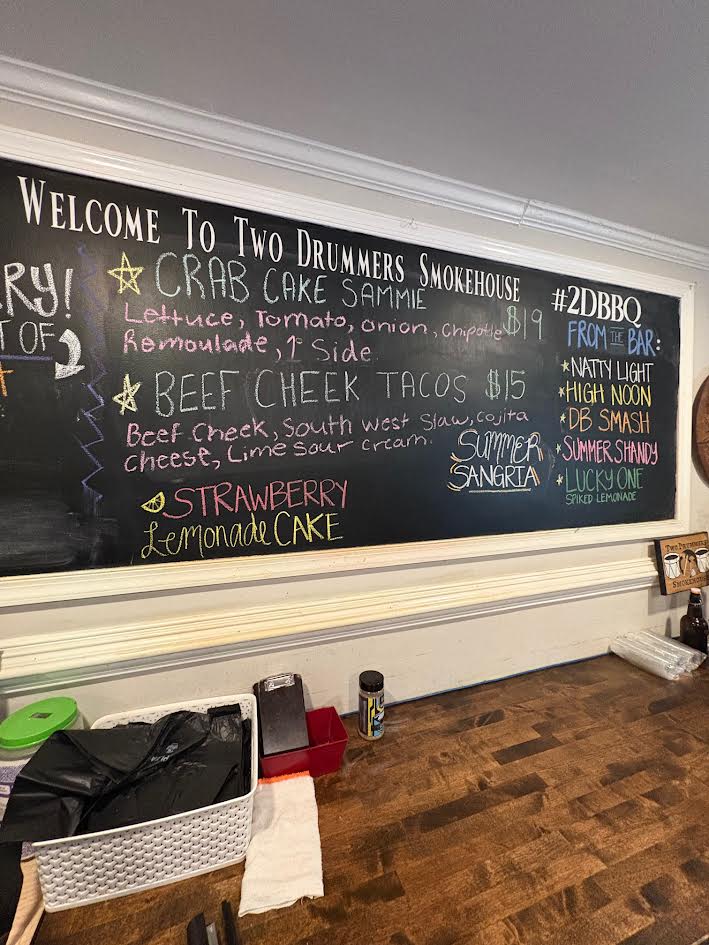 WELCOME TO TWO DRUMMERS SMOKEHOUSE
RY!
T OF
CRAB CAKE SAMMIE
Lettuce, Tomato, onion, Chipotle $19
Remoulade, 1 Side.
BEEF CHEEK TACOS $15
Beef Cheek, South West Slaw, Cojita
Cheese, Lime Sour Cream.
SUMMER
SANGRIA
STRAWBERRY
Lemonade CAKE
#2DBBQ
FROM THE BAR:
NATTY LIGHT
HIGH NOON
DB SMASH
SUMMER SHANDY
LUCKY ONE
SPIKED LEMONADE
TWO DRUMMERS
SMOKEHOUSE